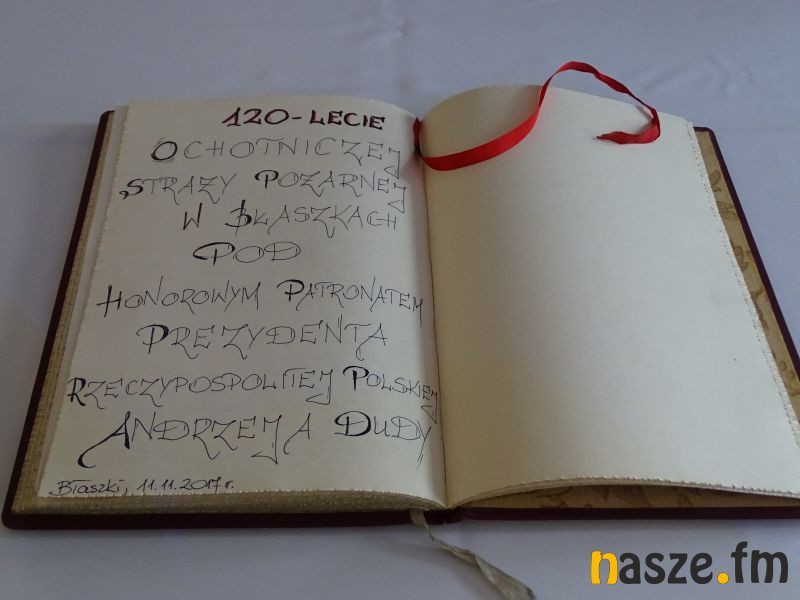 120-LECIE
OCHOTNICZEJ
STRAŻY POŻARNEJ
W BŁASZKACH
POD
HONOROWYM PATRONATEM
PREZYDENTA
RZECZYPOSPOLITEJ POLSKIEJ
ANDRZEJA DUDY
Błaszki, 11.11.2017r.
nasze.fm